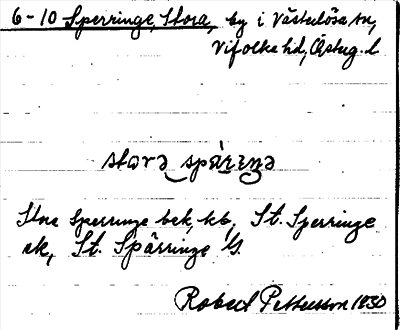 6-10 Sperringe, Stora, by i Västerlösa sn,
Vifolka hd, Östug. l
stora spä̀riŋə
Stora Sperringe bek, kb, St. Sperringe
ek, St. Spärringe G.
Robert Pettersson 1930